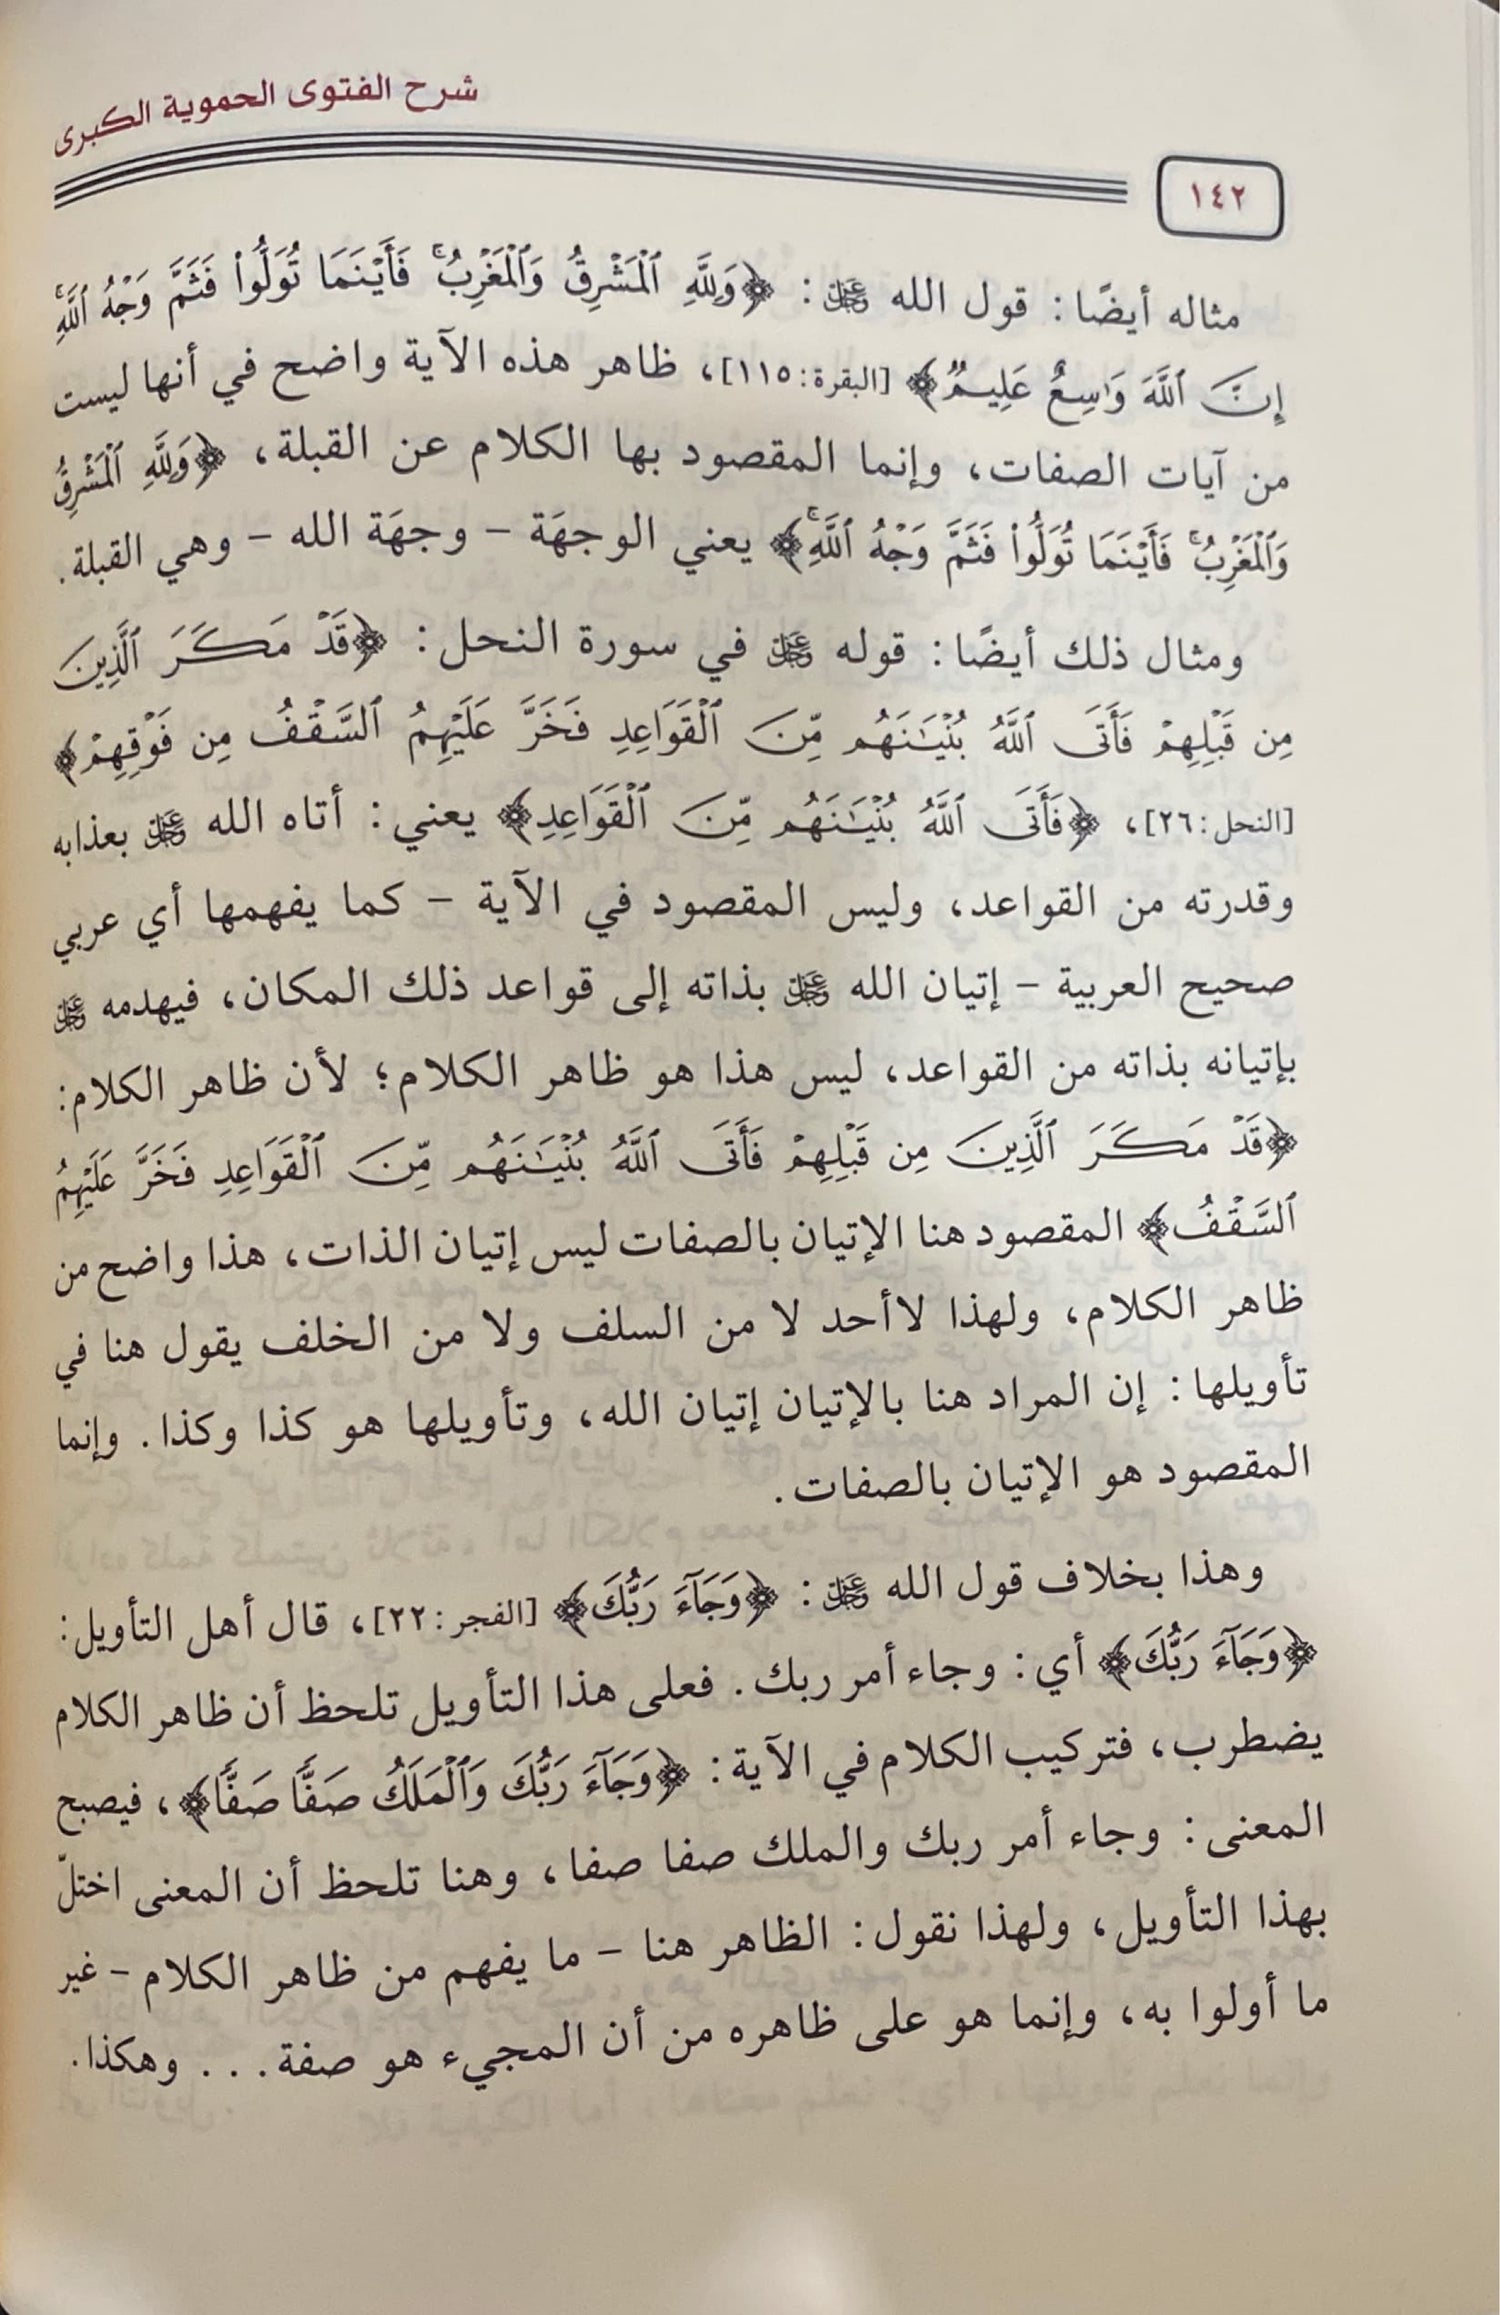 شرح الفتوى الحموية الكبرى
١٤٢
مثاله أيضًا: قول الله عز وجل: ﴿وَلِلَّهِ ٱلْمَشْرِقُ وَٱلْمَغْرِبُ ۚ فَأَيْنَمَا تُوَلُّوا۟ فَثَمَّ وَجْهُ ٱللَّهِ ۚ
إِنَّ ٱللَّهَ وَٰسِعٌ عَلِيمٌ﴾ [البقرة: ١١٥]، ظاهر هذه الآية واضح في أنها ليست
من آيات الصفات، وإنما المقصود بها الكلام عن القبلة، ﴿وَلِلَّهِ ٱلْمَشْرِقُ
وَٱلْمَغْرِبُ ۚ فَأَيْنَمَا تُوَلُّوا۟ فَثَمَّ وَجْهُ ٱللَّهِ ۚ﴾ يعني الوجهَة - وجهَة الله - وهي القبلة.
ومثال ذلك أيضًا: قوله عز وجل في سورة النحل: ﴿قَدْ مَكَرَ ٱلَّذِينَ
مِن قَبْلِهِمْ فَأَتَى ٱللَّهُ بُنْيَٰنَهُم مِّنَ ٱلْقَوَاعِدِ فَخَرَّ عَلَيْهِمُ ٱلسَّقْفُ مِن فَوْقِهِمْ﴾
[النحل: ٢٦]، ﴿فَأَتَى ٱللَّهُ بُنْيَٰنَهُم مِّنَ ٱلْقَوَاعِدِ﴾ يعني: أتاه الله عز وجل بعذابه
وقدرته من القواعد، وليس المقصود في الآية - كما يفهمها أي عربي
صحيح العربية - إتيان الله عز وجل بذاته إلى قواعد ذلك المكان، فيهدمه عز وجل
بإتيانه بذاته من القواعد، ليس هذا هو ظاهر الكلام؛ لأن ظاهر الكلام:
﴿قَدْ مَكَرَ ٱلَّذِينَ مِن قَبْلِهِمْ فَأَتَى ٱللَّهُ بُنْيَٰنَهُم مِّنَ ٱلْقَوَاعِدِ فَخَرَّ عَلَيْهِمُ
ٱلسَّقْفُ﴾ المقصود هنا الإتيان بالصفات ليس إتيان الذات، هذا واضح من
ظاهر الكلام، ولهذا لا أحد لا من السلف ولا من الخلف يقول هنا في
تأويلها: إن المراد هنا بالإتيان إتيان الله، وتأويلها هو كذا وكذا. وإنما
المقصود هو الإتيان بالصفات.
وهذا بخلاف قول الله عز وجل: ﴿وَجَآءَ رَبُّكَ﴾ [الفجر: ٢٢]، قال أهل التأويل:
﴿وَجَآءَ رَبُّكَ﴾ أي: وجاء أمر ربك. فعلى هذا التأويل تلحظ أن ظاهر الكلام
يضطرب، فتركيب الكلام في الآية: ﴿وَجَآءَ رَبُّكَ وَٱلْمَلَكُ صَفًّا صَفًّا﴾، فيصبح
المعنى: وجاء أمر ربك والملك صفا صفا، وهنا تلحظ أن المعنى اختلّ
بهذا التأويل، ولهذا نقول: الظاهر هنا - ما يفهم من ظاهر الكلام - غير
ما أولوا به، وإنما هو على ظاهره من أن المجيء هو صفة... وهكذا.